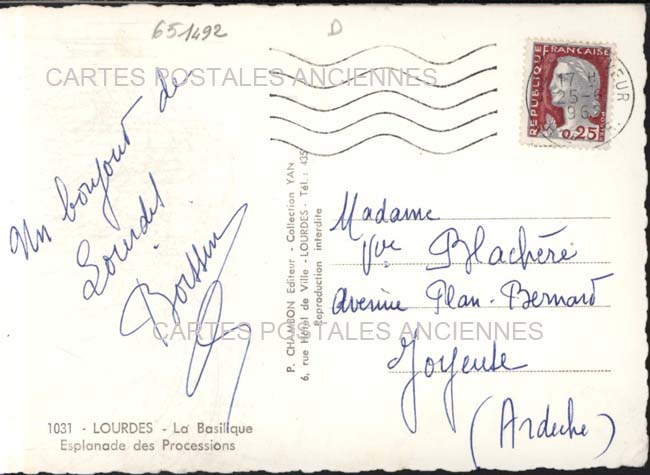 651492
D
CARTES POSTALES ANCIENNES
Un bonjour de
Lourdes
Boissin
1031 - LOURDES - La Basilique
Esplanade des Processions
P. CHAMBON Editeur - Collection YAN
6, rue Hôtel de Ville - LOURDES - Tél. : 435
Reproduction interdite
REPUBLIQUE FRANÇAISE
0,25
17 H
25-
1963
Madame
Vve Blachère
Avenue Plan-Bernard
Joyeuse
(Ardèche)
CARTES POSTALES ANCIENNES